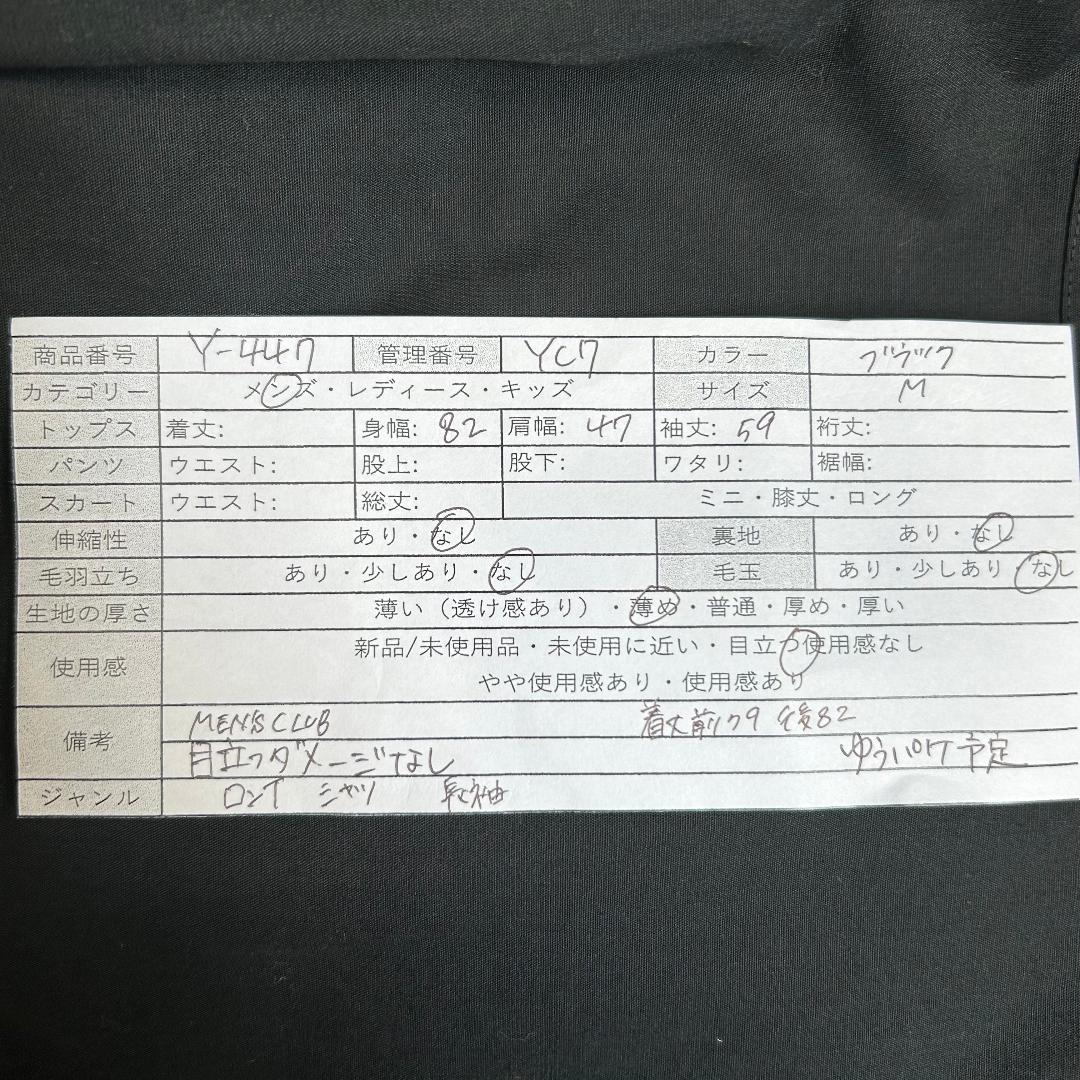 商品番号 Y-447 管理番号 YC7 カラー ブラック
カテゴリー メンズ・レディース・キッズ サイズ M
トップス 着丈: 身幅: 82 肩幅: 47 袖丈: 59 裄丈:
パンツ ウエスト: 股上: 股下: ワタリ: 裾幅:
スカート ウエスト: 総丈: ミニ・膝丈・ロング
伸縮性 あり・なし 裏地 あり・なし
毛羽立ち あり・少しあり・なし 毛玉 あり・少しあり・なし
生地の厚さ 薄い（透け感あり）・薄め・普通・厚め・厚い
使用感 新品/未使用品・未使用に近い・目立つ使用感なし
やや使用感あり・使用感あり
備考 MEN'S CLUB 着丈前79 後82
目立つダメージなし ゆうパケ予定
ジャンル ロンT シャツ 長袖